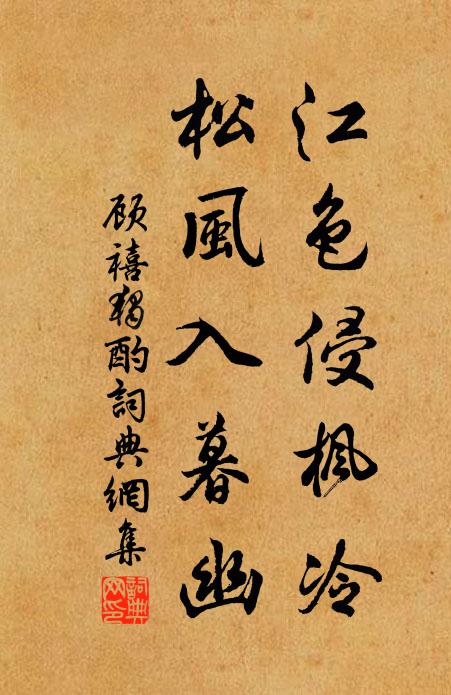 江色侵楓冷
松風入暮幽
顾禧獨酌詞典網集
詞典網印